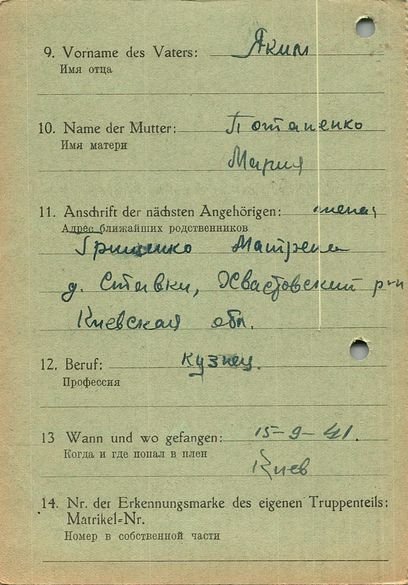 9. Vorname des Vaters: Яким
Имя отца
10. Name der Mutter: Потапенко
Имя матери
Мария
11. Anschrift der nächsten Angehörigen: жена,
Адрес ближайших родственников
Грищенко Матрена
д. Ставки, Хвастовский р-н
Киевская обл.
12. Beruf: Кузнец.
Профессия
13 Wann und wo gefangen: 15-9-41.
Когда и где попал в плен
Киев
14. Nr. der Erkennungsmarke des eigenen Truppenteils:
Matrikel=Nr.
Номер в собственной части